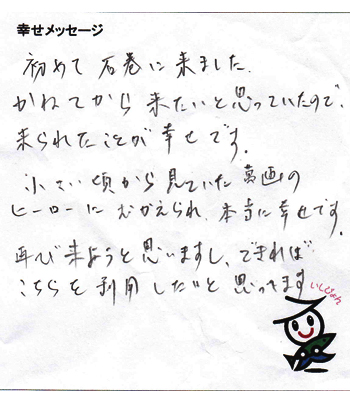 幸せメッセージ
初めて石巻に来ました.
かねてから来たいと思っていたので、
来られたことが幸せです.
小さい頃から見ていた萬画の
ヒーローにむかえられ、本当に幸せです.
再び来ようと思いますし、できれば
こちらを利用したいと思ってます
いしぴょん